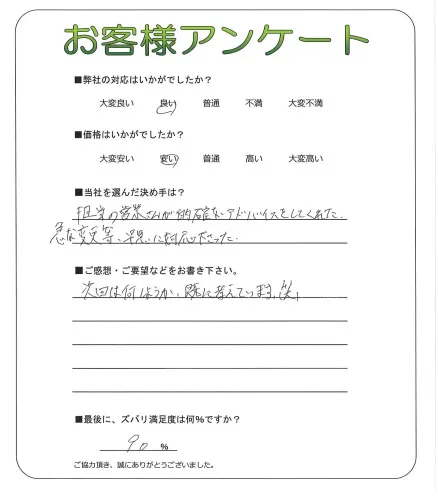 お客様アンケート
■弊社の対応はいかがでしたか？
大変良い 良い 普通 不満 大変不満
■価格はいかがでしたか？
大変安い 安い 普通 高い 大変高い
■当社を選んだ決め手は？
担当の営業さんが的確なアドバイスをしてくれた.
急な変更等、早急に対応下さった.
■ご感想・ご要望などをお書き下さい。
次回は何しようか、既に考えています.笑
■最後に、ズバリ満足度は何％ですか？
90 %
ご協力頂き、誠にありがとうございました。